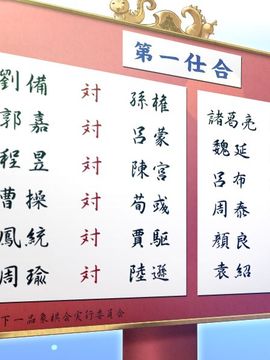 第一仕合
劉備 対 孫権 諸葛亮
郭嘉 対 呂蒙 魏延
程昱 対 陳宮 呂布
曹操 対 荀彧 周泰
鳳統 対 賈駆 顔良
周瑜 対 陸遜 袁紹
下一品象棋会実行委員会